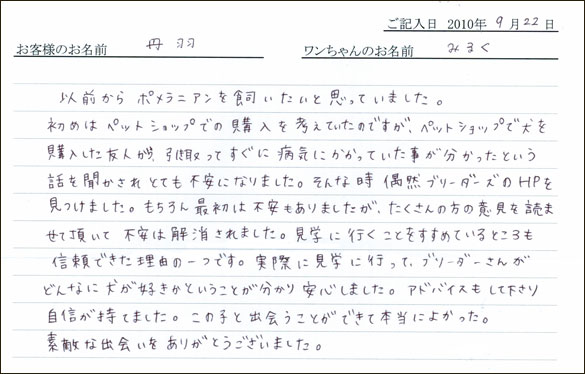 ご記入日 2010年 9月22日
お客様のお名前 丹羽 ワンちゃんのお名前 みるく
以前から ポメラニアンを飼いたいと思っていました。
初めはペットショップでの購入を考えていたのですが、ペットショップで犬を
購入した友人が、引取ってすぐに病気にかかっていた事が分かったという
話を聞かされとても不安になりました。そんな時 偶然ブリーダーズのHPを
見つけました。もちろん最初は不安もありましたが、たくさんの方の意見を読ま
せて頂いて 不安は解消されました。見学に行くことをすすめているところも
信頼できた理由の一つです。実際に見学に行って、ブリーダーさんが
どんなに犬が好きかということが分かり安心しました。アドバイスもして下さり
自信が持てました。この子と出会うことができて本当によかった。
素敵な出会いをありがとうございました。